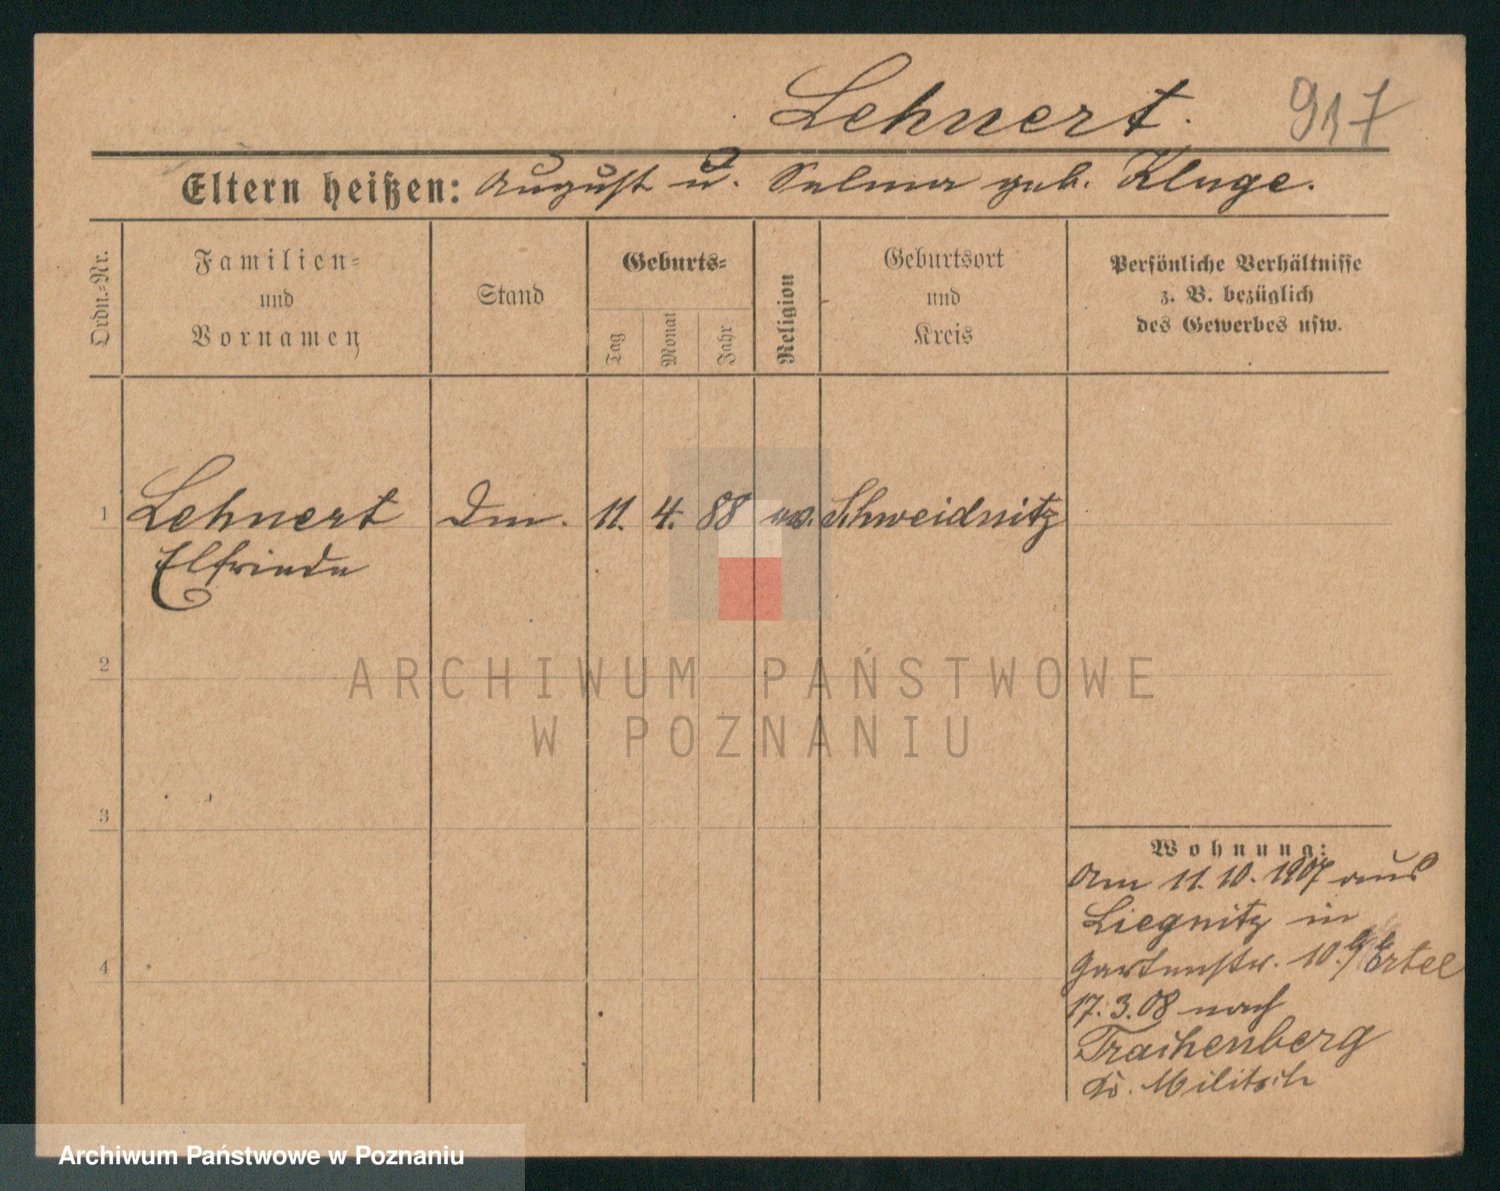 Lehnert. 917
Eltern heißen: August u. Selma geb. Kluge.
Ordn.-Nr.
Familien-
und
Vornamen
Stand
Geburts-
Tag
Monat
Jahr
Religion
Geburtsort
und
Kreis
Persönliche Verhältnisse
z. B. bezüglich
des Gewerbes usw.
1 Lehnert 11. 4. 88 ev. Schweidnitz
Elfriede
2
ARCHIWUM PAŃSTWOWE
W POZNANIU
3
Wohnung:
Am 11.10.1907 aus
Liegnitz in
4
Gartenstr. 10. b/ Ertel
17.3.08 nach
Trachenberg
Militsch
Archiwum Państwowe w Poznaniu